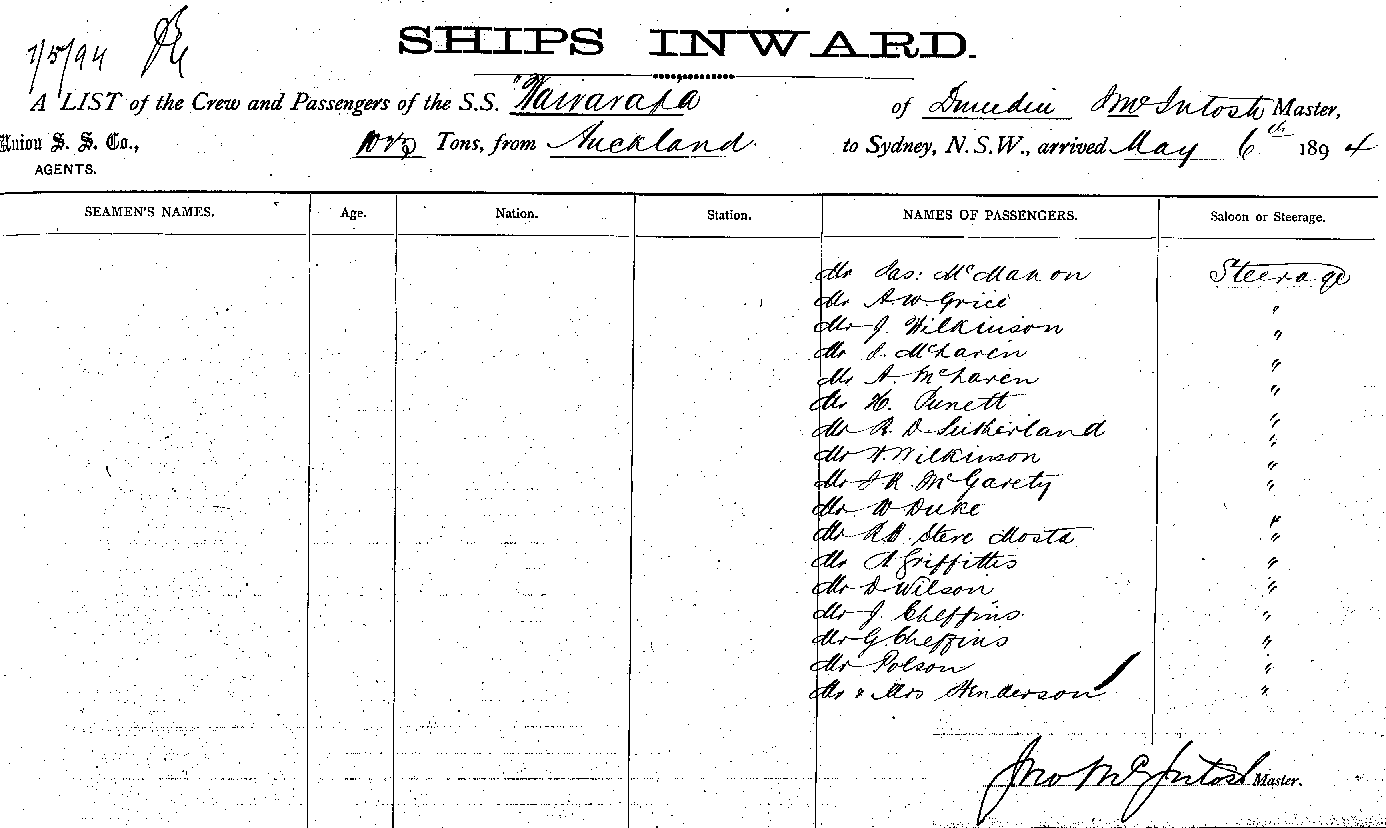 SHIPS INWARD.
7/5/94
A LIST of the Crew and Passengers of the S.S. "Wairarapa of Dunedin J McIntosh Master,
Union S. S. Co., Tons, from Auckland to Sydney, N.S.W., arrived May 6th 1894
AGENTS.
SEAMEN'S NAMES. Age. Nation. Station. NAMES OF PASSENGERS. Saloon or Steerage.
Mr Jas: McMahon Steerage
Mr A. W. Grice "
Mr J. Wilkinson "
Mr J. McLaren "
Mr A. McLaren "
Mr H. Punett "
Mr R. D. Sutherland "
Mr W. Wilkinson "
Mr J R. McGarety "
Mr W Duke "
Mr Steve Mosta "
Mr A Griffitts "
Mr D Wilson "
Mr J. Cheffins "
Mr G Cheffins "
Mr Polson "
Mr & Mrs Henderson "
Jno McIntosh Master.